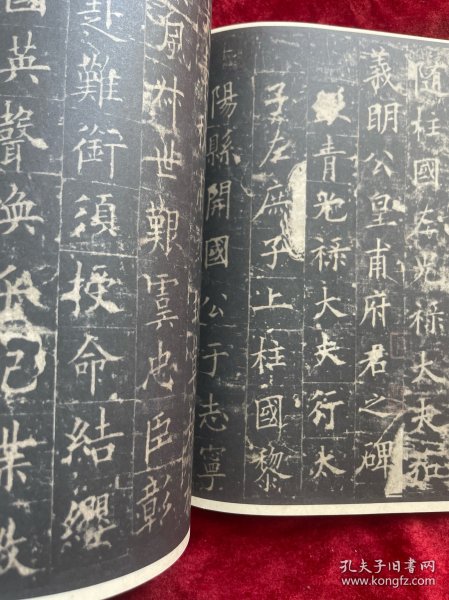 隨柱國左光祿大夫弘
義明公皇甫府君之碑
青光祿大夫行太
子左庶子上柱國黎
陽縣開國公于志寧
風叔世艱虞忠臣彰
赴難銜須授命結纓
國英聲煥乎記牒
孔夫子旧书网
www.kongfz.com